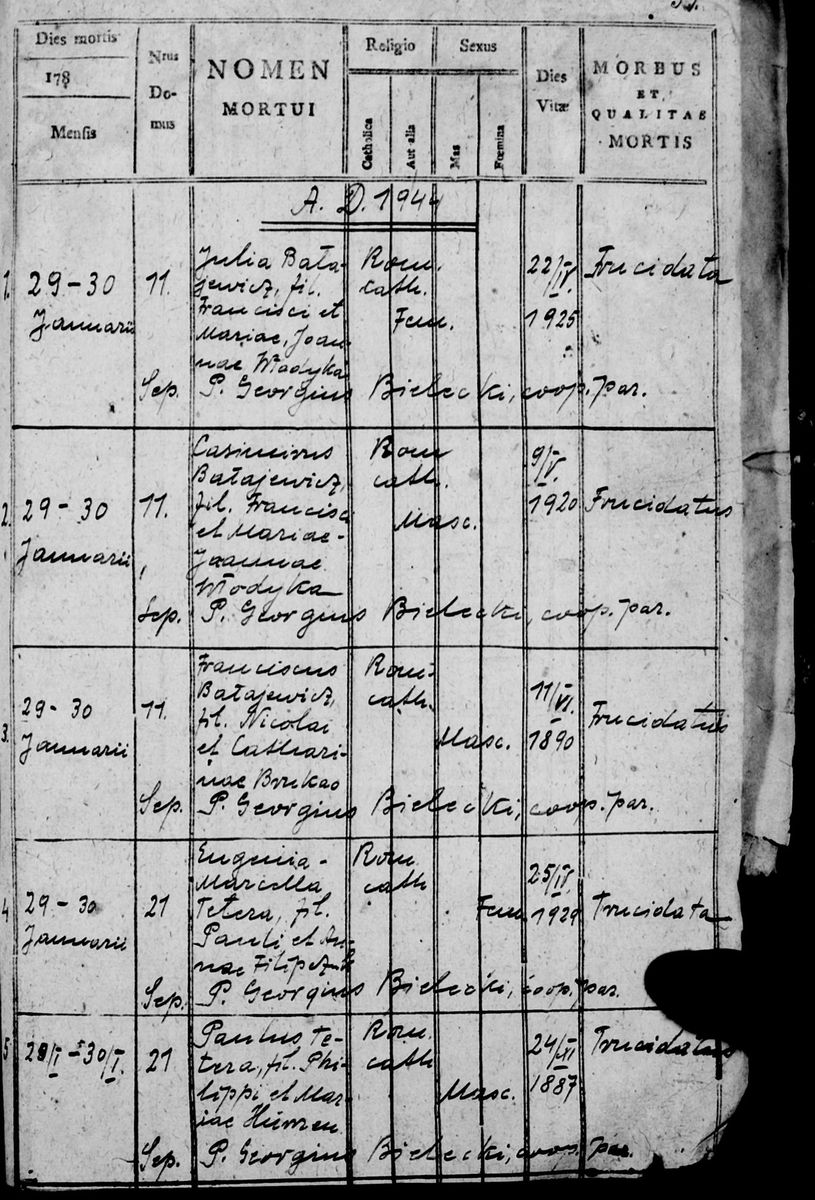 Dies mortis
178
Mensis
Nrus Do-mus
NOMEN
MORTUI
Religio
Catholica
Aut alia
Sexus
Mas
Fœmina
Dies
Vitæ
MORBUS
ET
QUALITAS
MORTIS
A. D. 1944
1. 29-30 11. Julia Bała- Rom. 22/IV. Trucidata
Januarii jewicz, fil. cath. 1925
Francisci et Fem.
Mariae, Joan-
nae Włodyka
Sep. P. Georgius Bielecki, coop. par.
2. 29-30 11. Casimirus Rom 9/V. Trucidatus
Januarii Bałajewicz, cath. 1920
fil. Francisci Masc.
et Mariae-
Joannae
Włodyka
Sep. P. Georgius Bielecki, coop. par.
3. 29-30 11. Franciscus Rom. 11/VI. Trucidatus
Januarii Bałajewicz, cath. 1890
fil. Nicolai Masc.
et Cathari-
nae
Sep. P. Georgius Bielecki, coop. par.
4 29-30 21 Eugenia- Rom. 25/IV. Trucidata
Januarii Marcella cath 1929
Tetera, fil. Fem.
Pauli et An-
nae
Sep. P. Georgius Bielecki, coop. par.
5 29/I-30/I. 21 Paulus Te- Rom. 24/XI Trucidatus
tera, fil. Phi- cath 1887
lippi et Mar- Masc.
iae
Sep. P. Georgius Bielecki, coop. par.